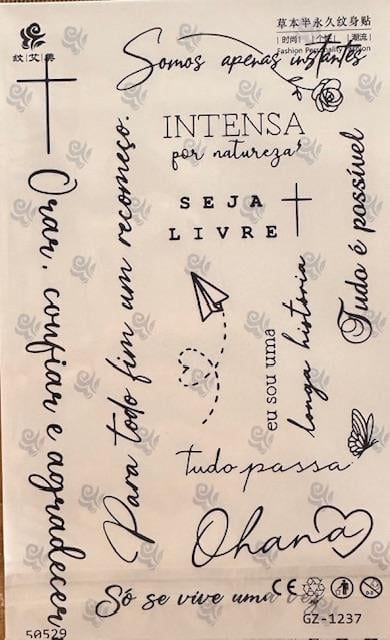 纹艾美
草本半永久纹身贴
时尚 | 个性 | 潮流
Fashion Personality Fashion
Somos apenas instantes
INTENSA
por natureza
SEJA
LIVRE
Tudo é possível
Orar, confiar e agradecer
Para todo fim um recomeço.
eu sou uma
longa história
tudo passa
Ohana
Só se vive uma vez
CE
GZ-1237
50529